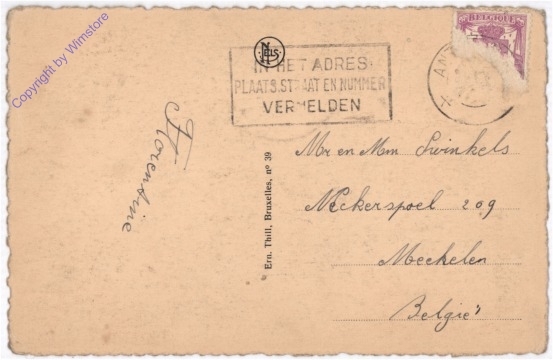 Copyright by Wimstore
BELGIQUE
NELS
IN HET ADRES
PLAATS, STRAAT EN NUMMER
VERMELDEN
ANT
Florentine
Ern. Thill, Bruxelles, nº 39
Mr en Mm Swinkels
Neckerspoel 209
Mechelen
België